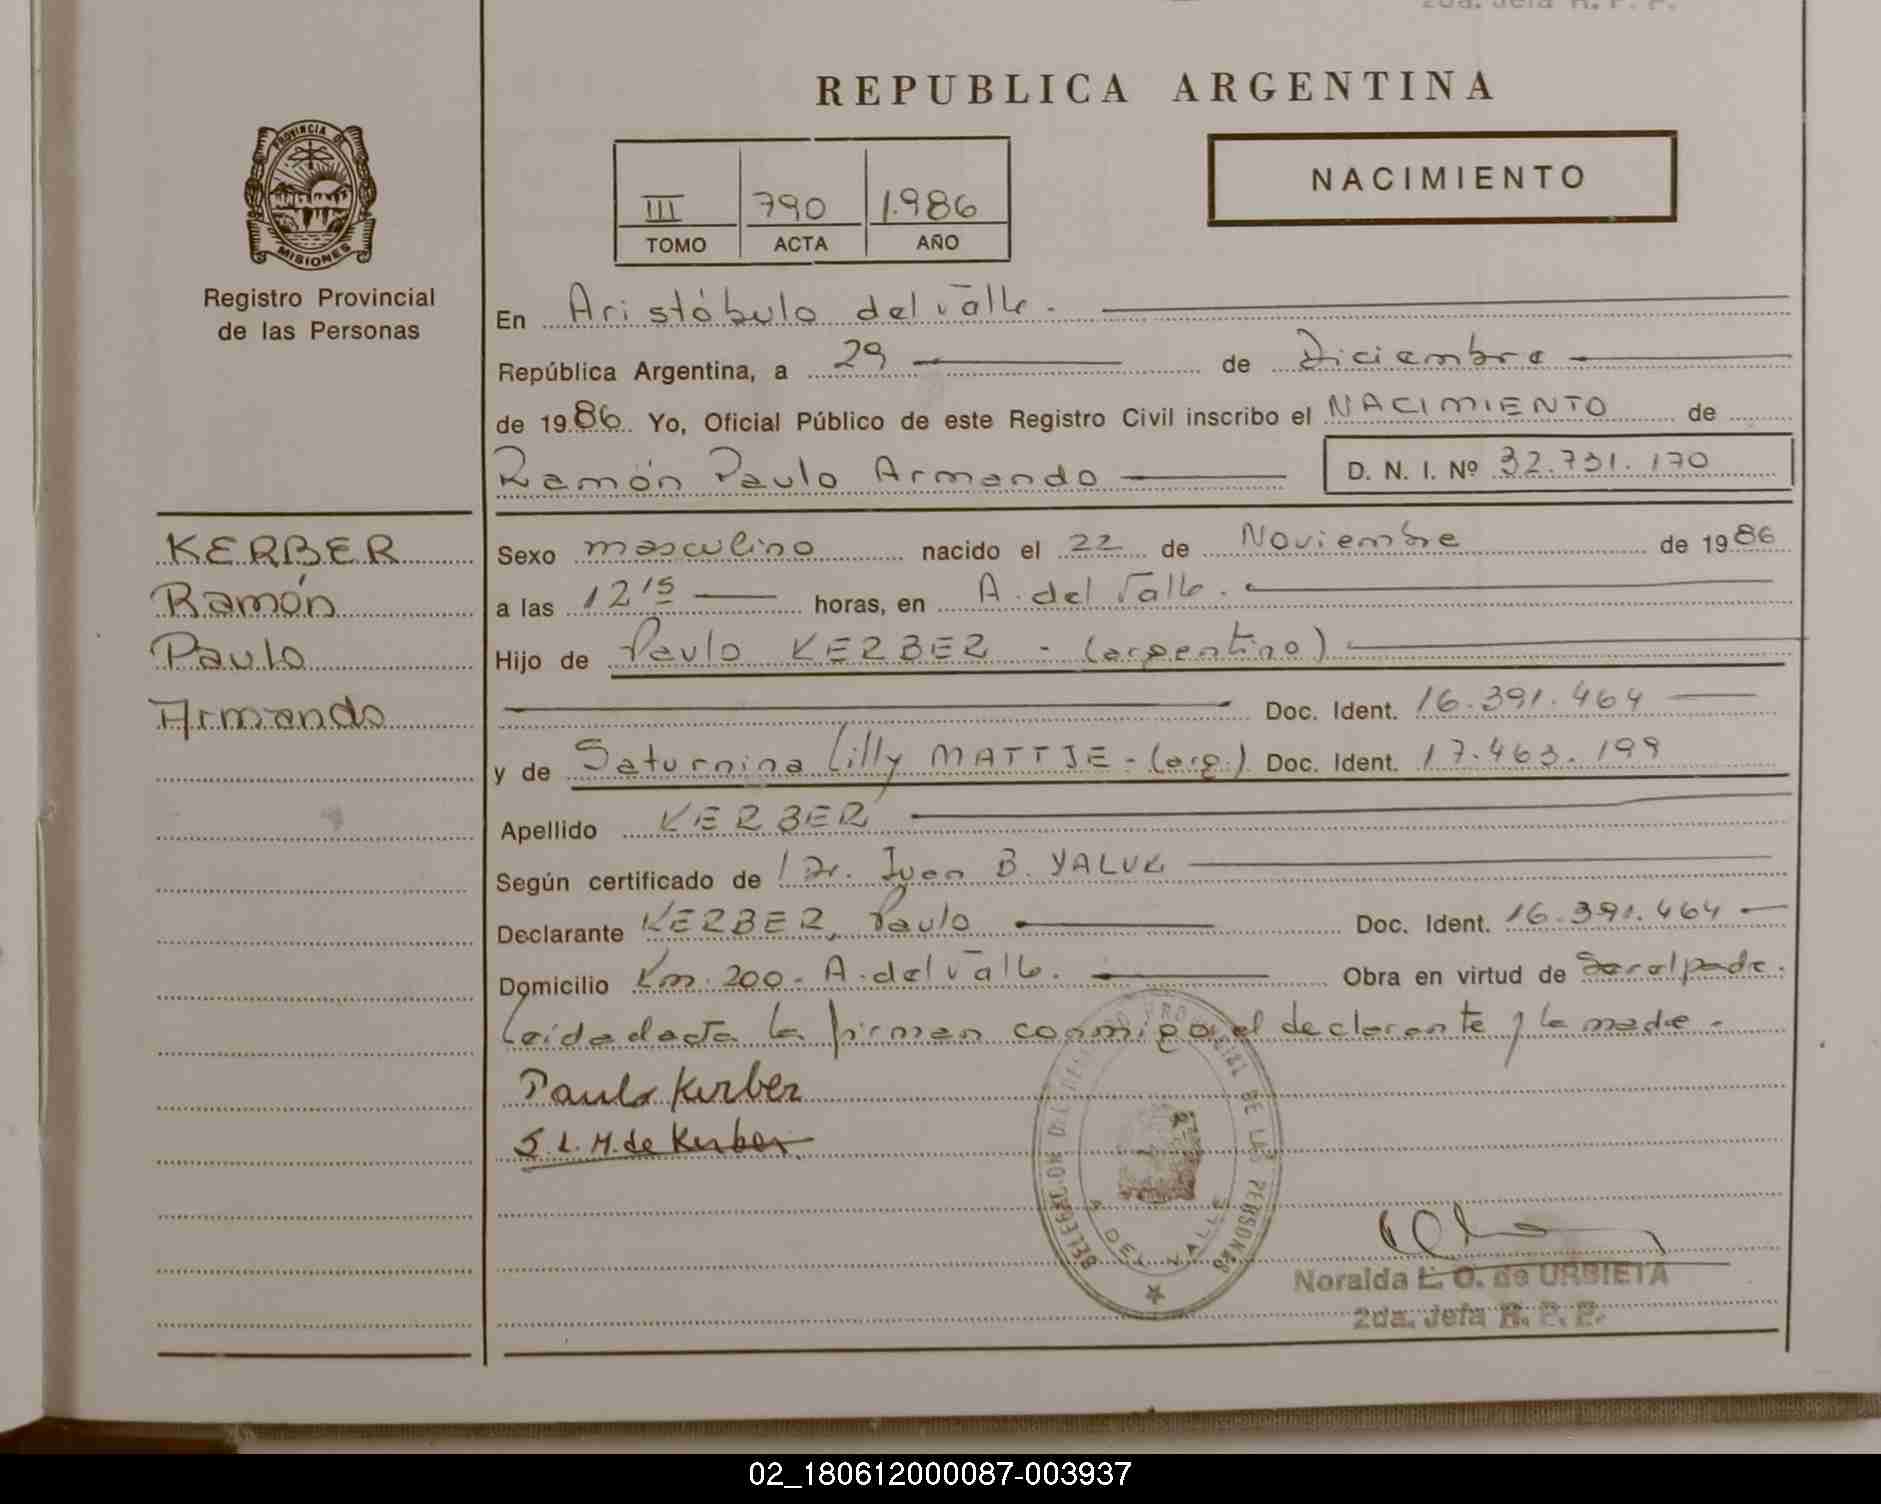 2da. Jefa R. P. P.
REPUBLICA ARGENTINA
PROVINCIA DE
MISIONES
Registro Provincial
de las Personas
III 790 1.986
TOMO ACTA AÑO
NACIMIENTO
En Aristóbulo del Valle.
República Argentina, a 29 de Diciembre
de 1986. Yo, Oficial Público de este Registro Civil inscribo el NACIMIENTO de
Ramón Paulo Armando D. N. I. Nº 32.731.170
KERBER
Ramón
Paulo
Armando
Sexo masculino nacido el 22 de Noviembre de 1986
a las 12 15 horas, en A. del Valle.
Hijo de Paulo KERBER - (argentino)
Doc. Ident. 16.391.464
y de Saturnina Lilly MATTJE - (arg.) Doc. Ident. 17.463.199
Apellido KERBER
Según certificado de Dr. Juan B. YALUK
Declarante KERBER, Paulo Doc. Ident. 16.391.464
Domicilio Km. 200 - A. del Valle. Obra en virtud de ser el padre.
Leida el acta la firman conmigo el declarante y la madre -
Paulo Kerber
S. L. M. de Kerber
DELEGACION DEL REGISTRO PROVINCIAL DE LAS PERSONAS
A. DEL VALLE
Noralda L. O. de URBIETA
2da. Jefa R. P. P.
02_180612000087-003937